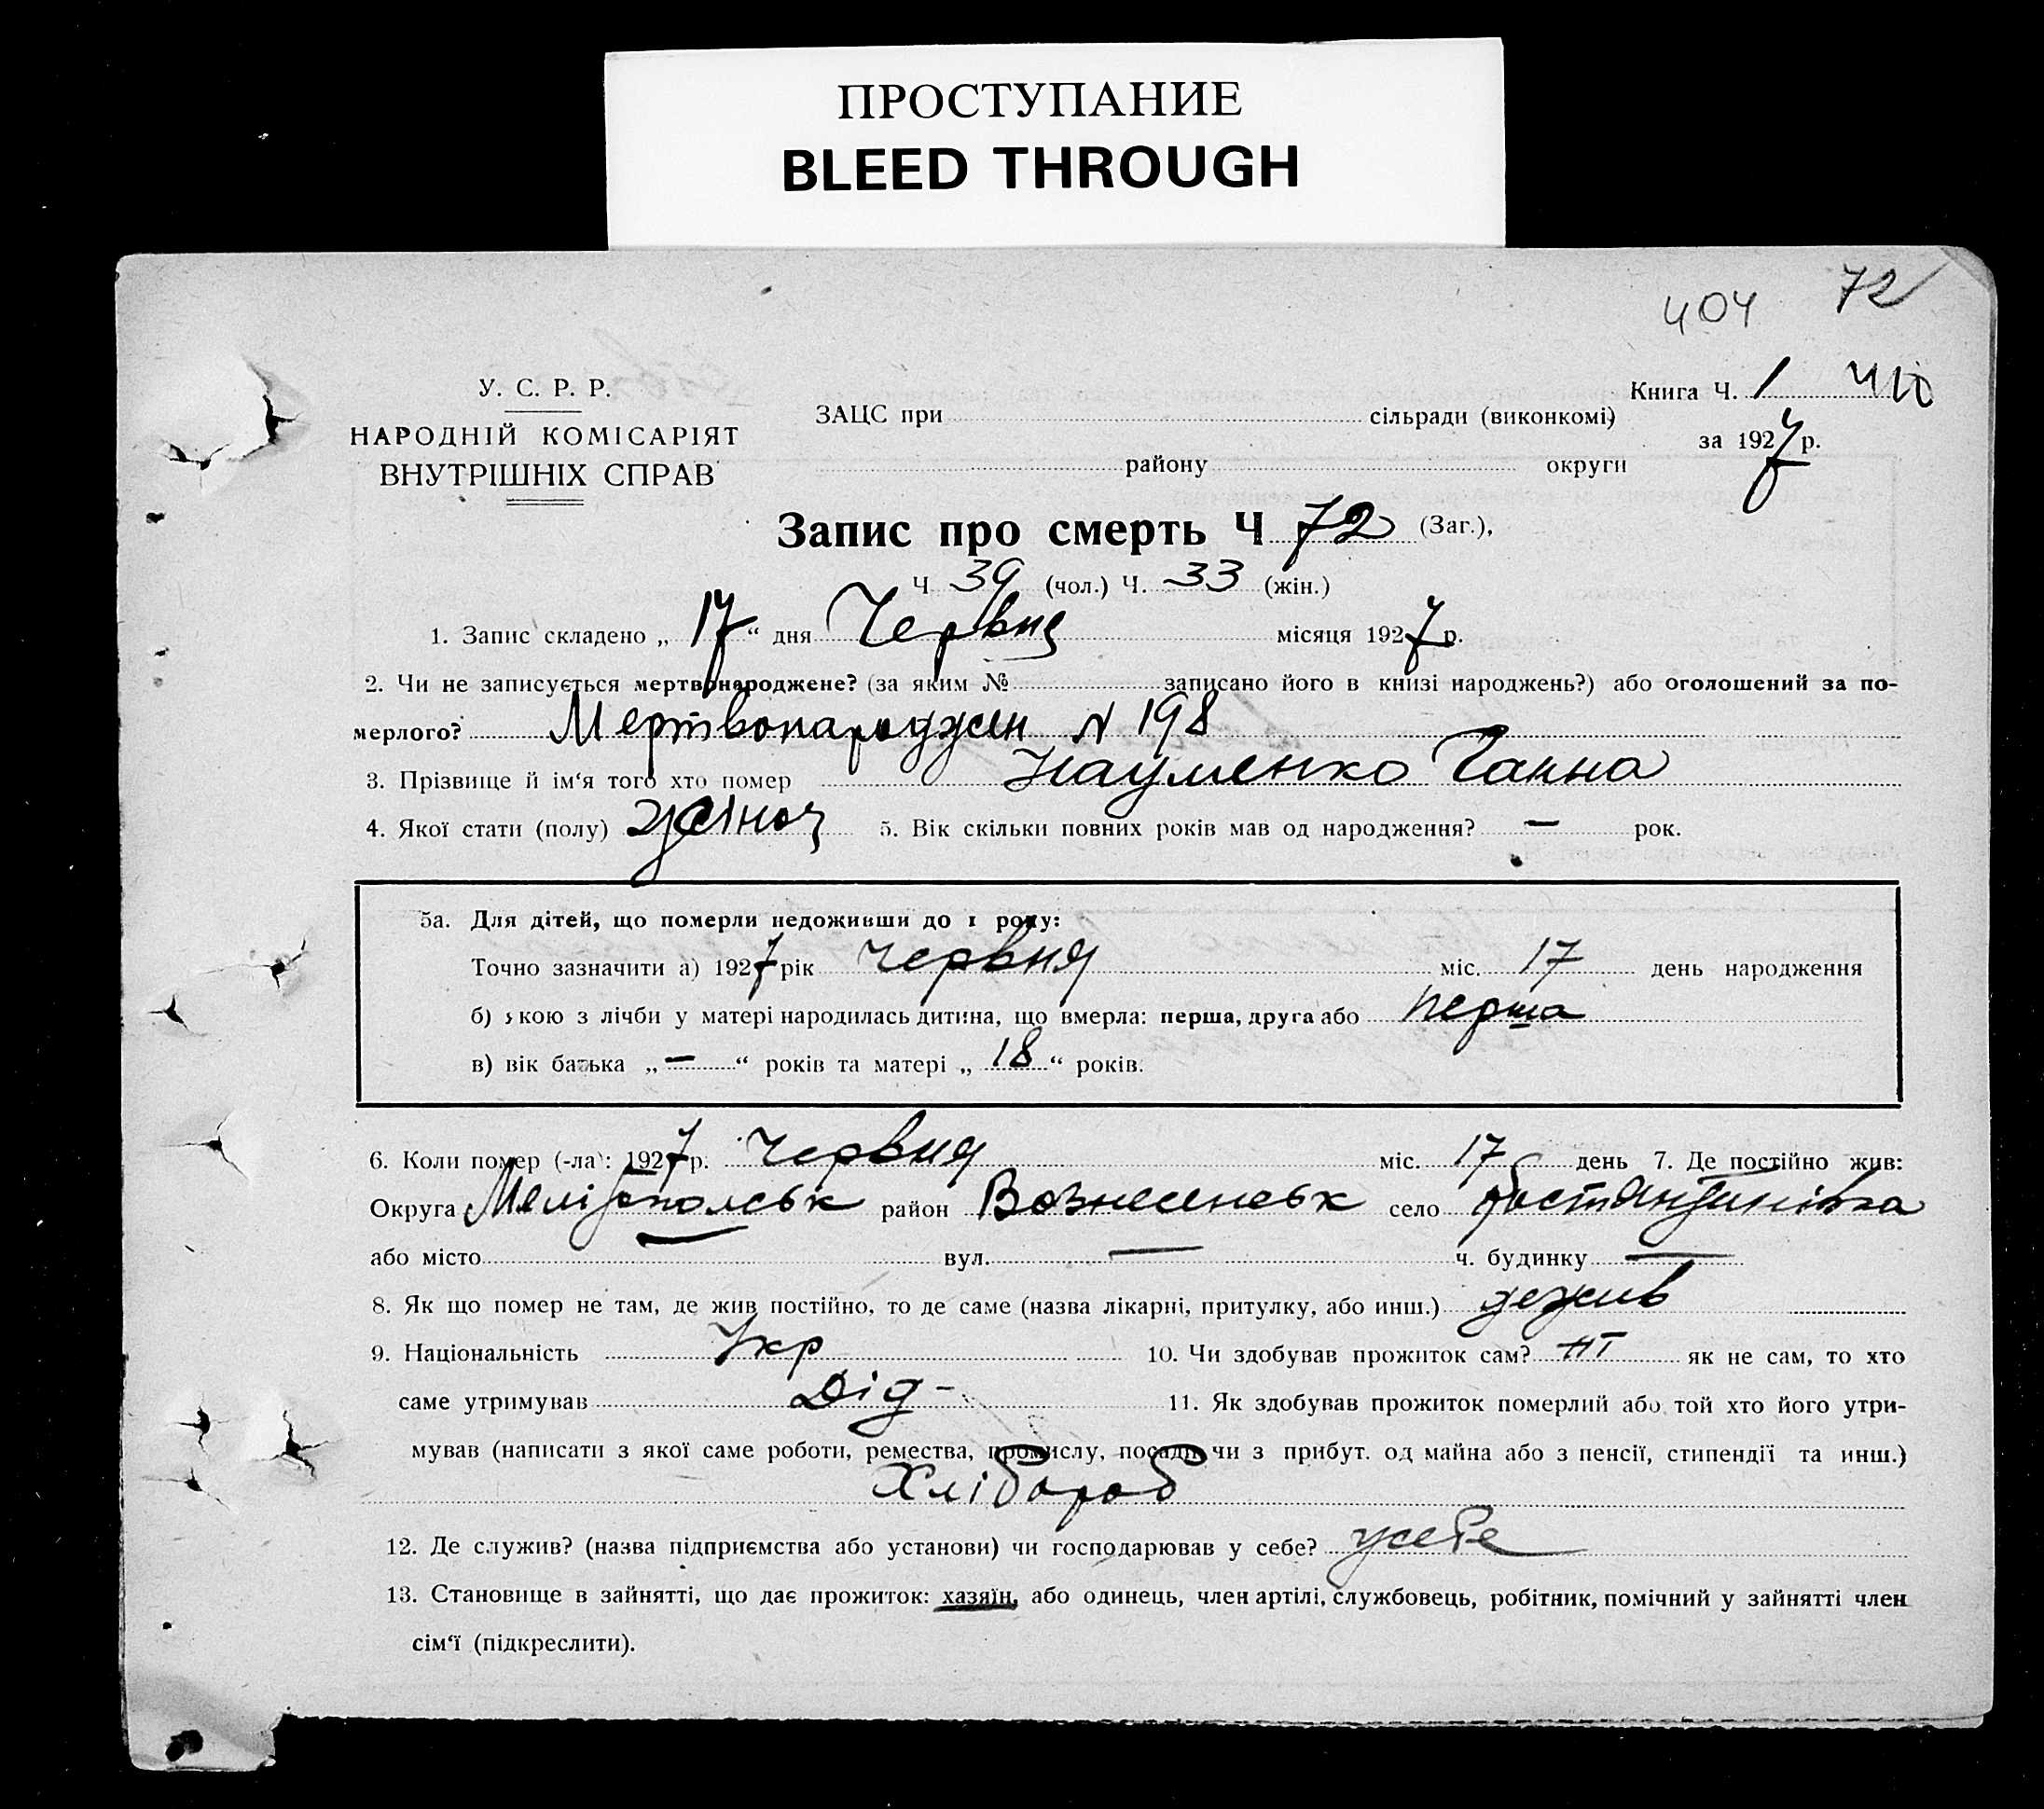 ПРОСТУПАНИЕ
BLEED THROUGH
404 72
У. С. Р. Р.
НАРОДНІЙ КОМІСАРІЯТ
ВНУТРІШНІХ СПРАВ
Книга Ч. 1
ЗАЦС при сільради (виконкомі)
за 1927 р.
району округи
Запис про смерть Ч 72 (Заг.),
Ч 39 (чол.) Ч. 33 (жін.)
1. Запис складено „ 17 “ дня Червня місяця 1927 р.
2. Чи не записується мертвонароджене? (за яким № записано його в книзі народжень?) або оголошений за по-
мерлого? Мертвонароджен N 198
3. Прізвище й ім‘я того хто помер Науменко Ганна
4. Якої стати (полу) жіноч 5. Вік скільки повних років мав од народження? — рок.
5а. Для дітей, що померли недоживши до 1 року:
Точно зазначити а) 1927 рік червня міс. 17 день народження
б) якою з лічби у матері народилась дитина, що вмерла: перша, друга або перша
в) вік батька „ — “ років та матері „ 18 “ років.
6. Коли помер (-ла): 1927 р. червня міс. 17 день 7. Де постійно жив:
Округа Мелітопольськ район Вознесенськ село
або місто вул. — ч. будинку —
8. Як що помер не там, де жив постійно, то де саме (назва лікарні, притулку, або инш.) де жив
9. Національність Укр 10. Чи здобував прожиток сам? ні як не сам, то хто
саме утримував Дід - 11. Як здобував прожиток померлий або той хто його утри-
мував (написати з якої саме роботи, ремества, промислу, посади чи з прибут. од майна або з пенсії, стипендії та инш.)
Хлібороб
12. Де служив? (назва підприємства або установи) чи господарював у себе? у себе
13. Становище в зайнятті, що дає прожиток: хазяїн, або одинець, член артілі, службовець, робітник, помічний у зайнятті член
сім‘ї (підкреслити).